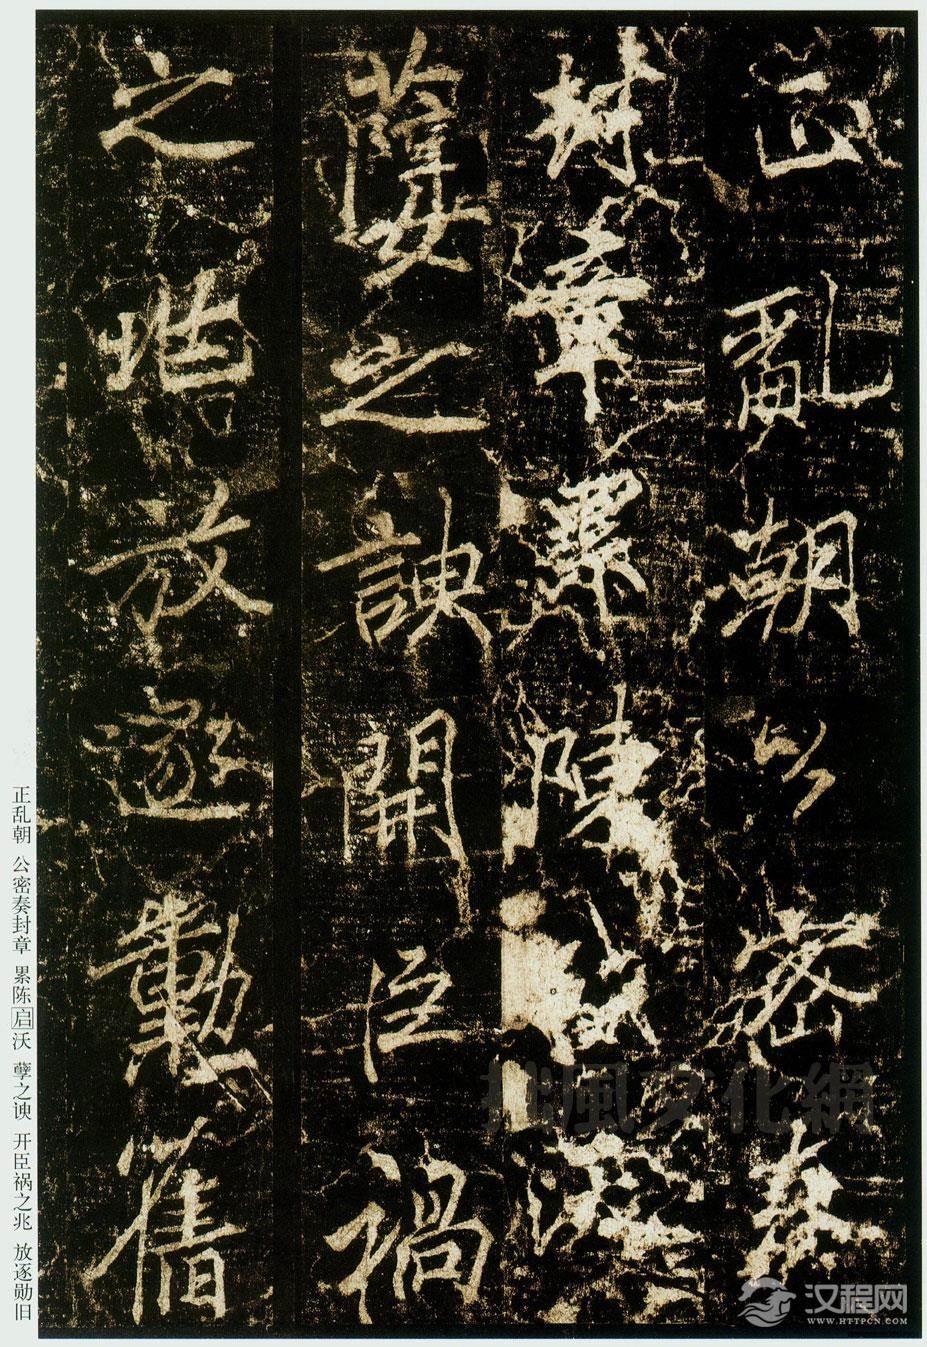 正亂朝公密奏
封章累陳啟沃
孽之諛開臣禍
之堦放逐勳舊
正乱朝 公密奏封章 累陈启沃 孽之谀 开臣祸之兆 放逐勋旧
拙風文化網
汉程网
WWW.HTTPCN.COM